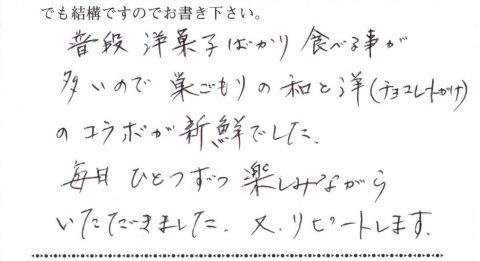 でも結構ですのでお書き下さい。
普段 洋菓子ばかり 食べる事が
多いので 巣ごもりの和と洋(チョコレートがけ)
のコラボが新鮮でした.
毎日 ひとつずつ 楽しみながら
いただきました. 又.リピートします.